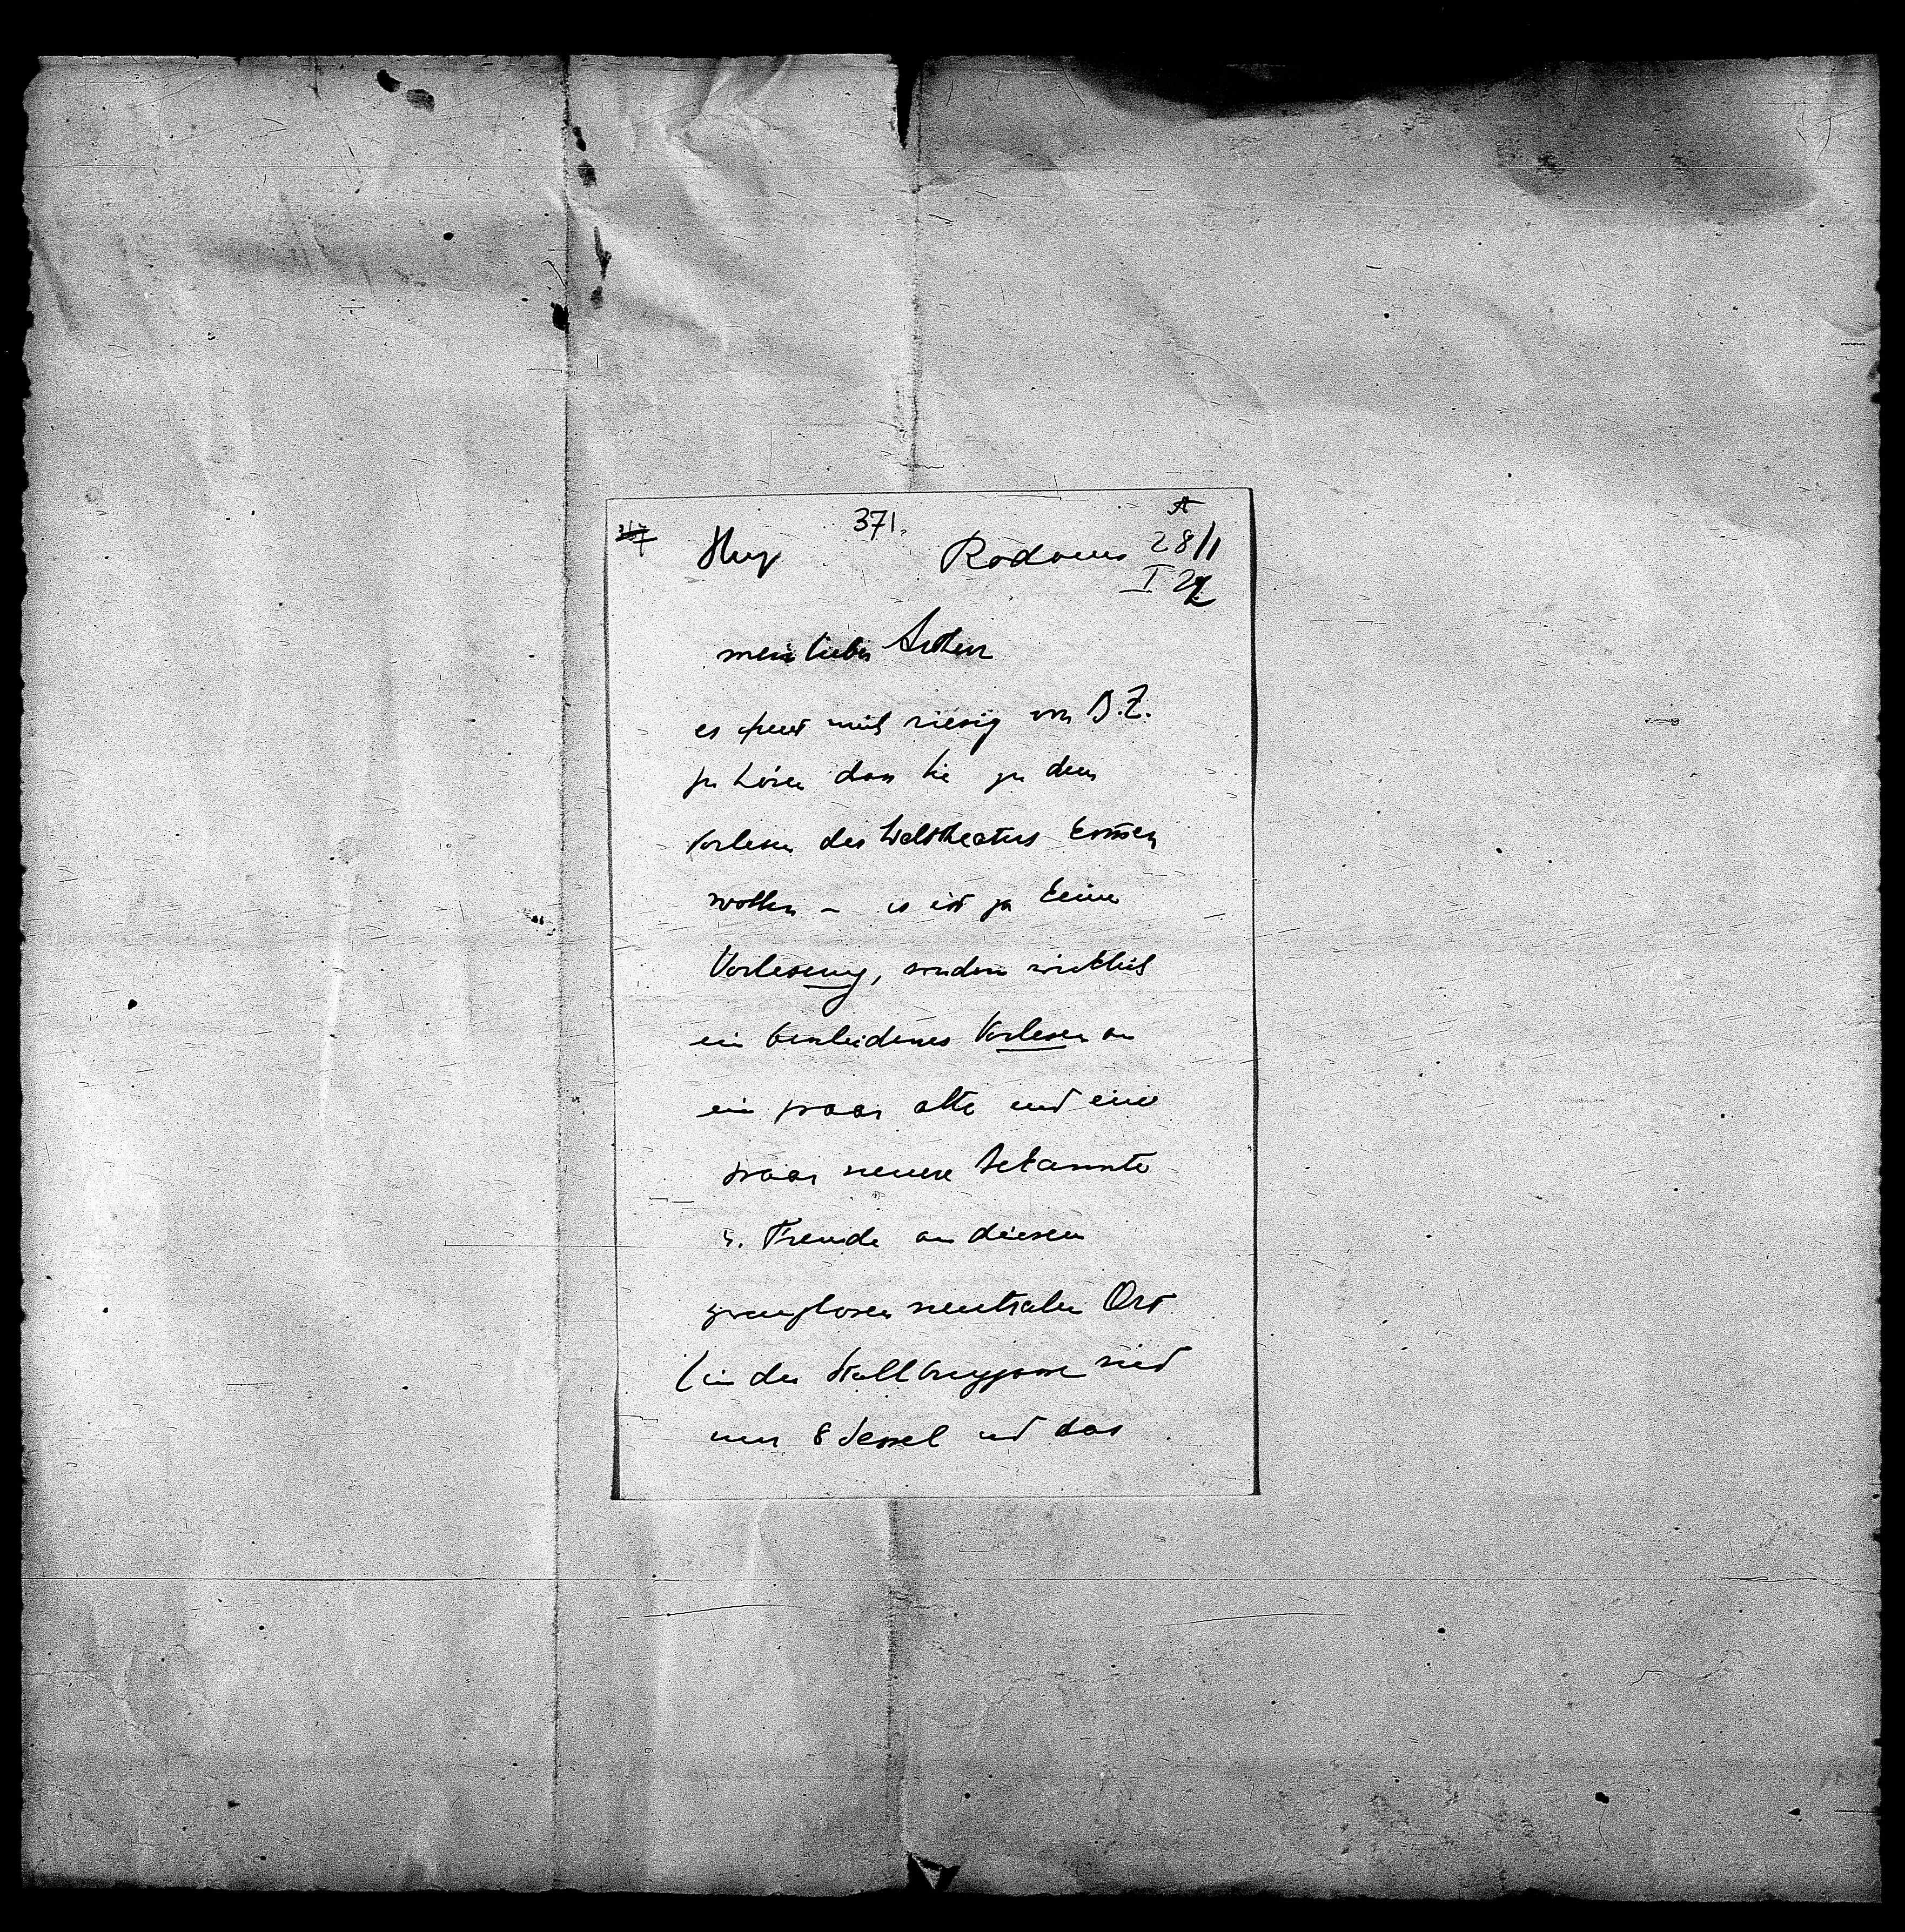 371.
A
Hug
Rodaun 28/I
I 22
mein lieber Arthur
es freut mich riesig von B.Z.
zu hören dass Sie zu dem
Vorlesen des Welttheaters kom̄en
wollen – es ist ja keine
Vorlesung, sondern wirklich
ein bescheidenes Vorlesen an
ein paar alte und ein
paar neuere Bekannte
u. Freunde an diesem
zwanglosen neutralen Ort
(in der Stallburggasse sind
nur 8 Sessel und das